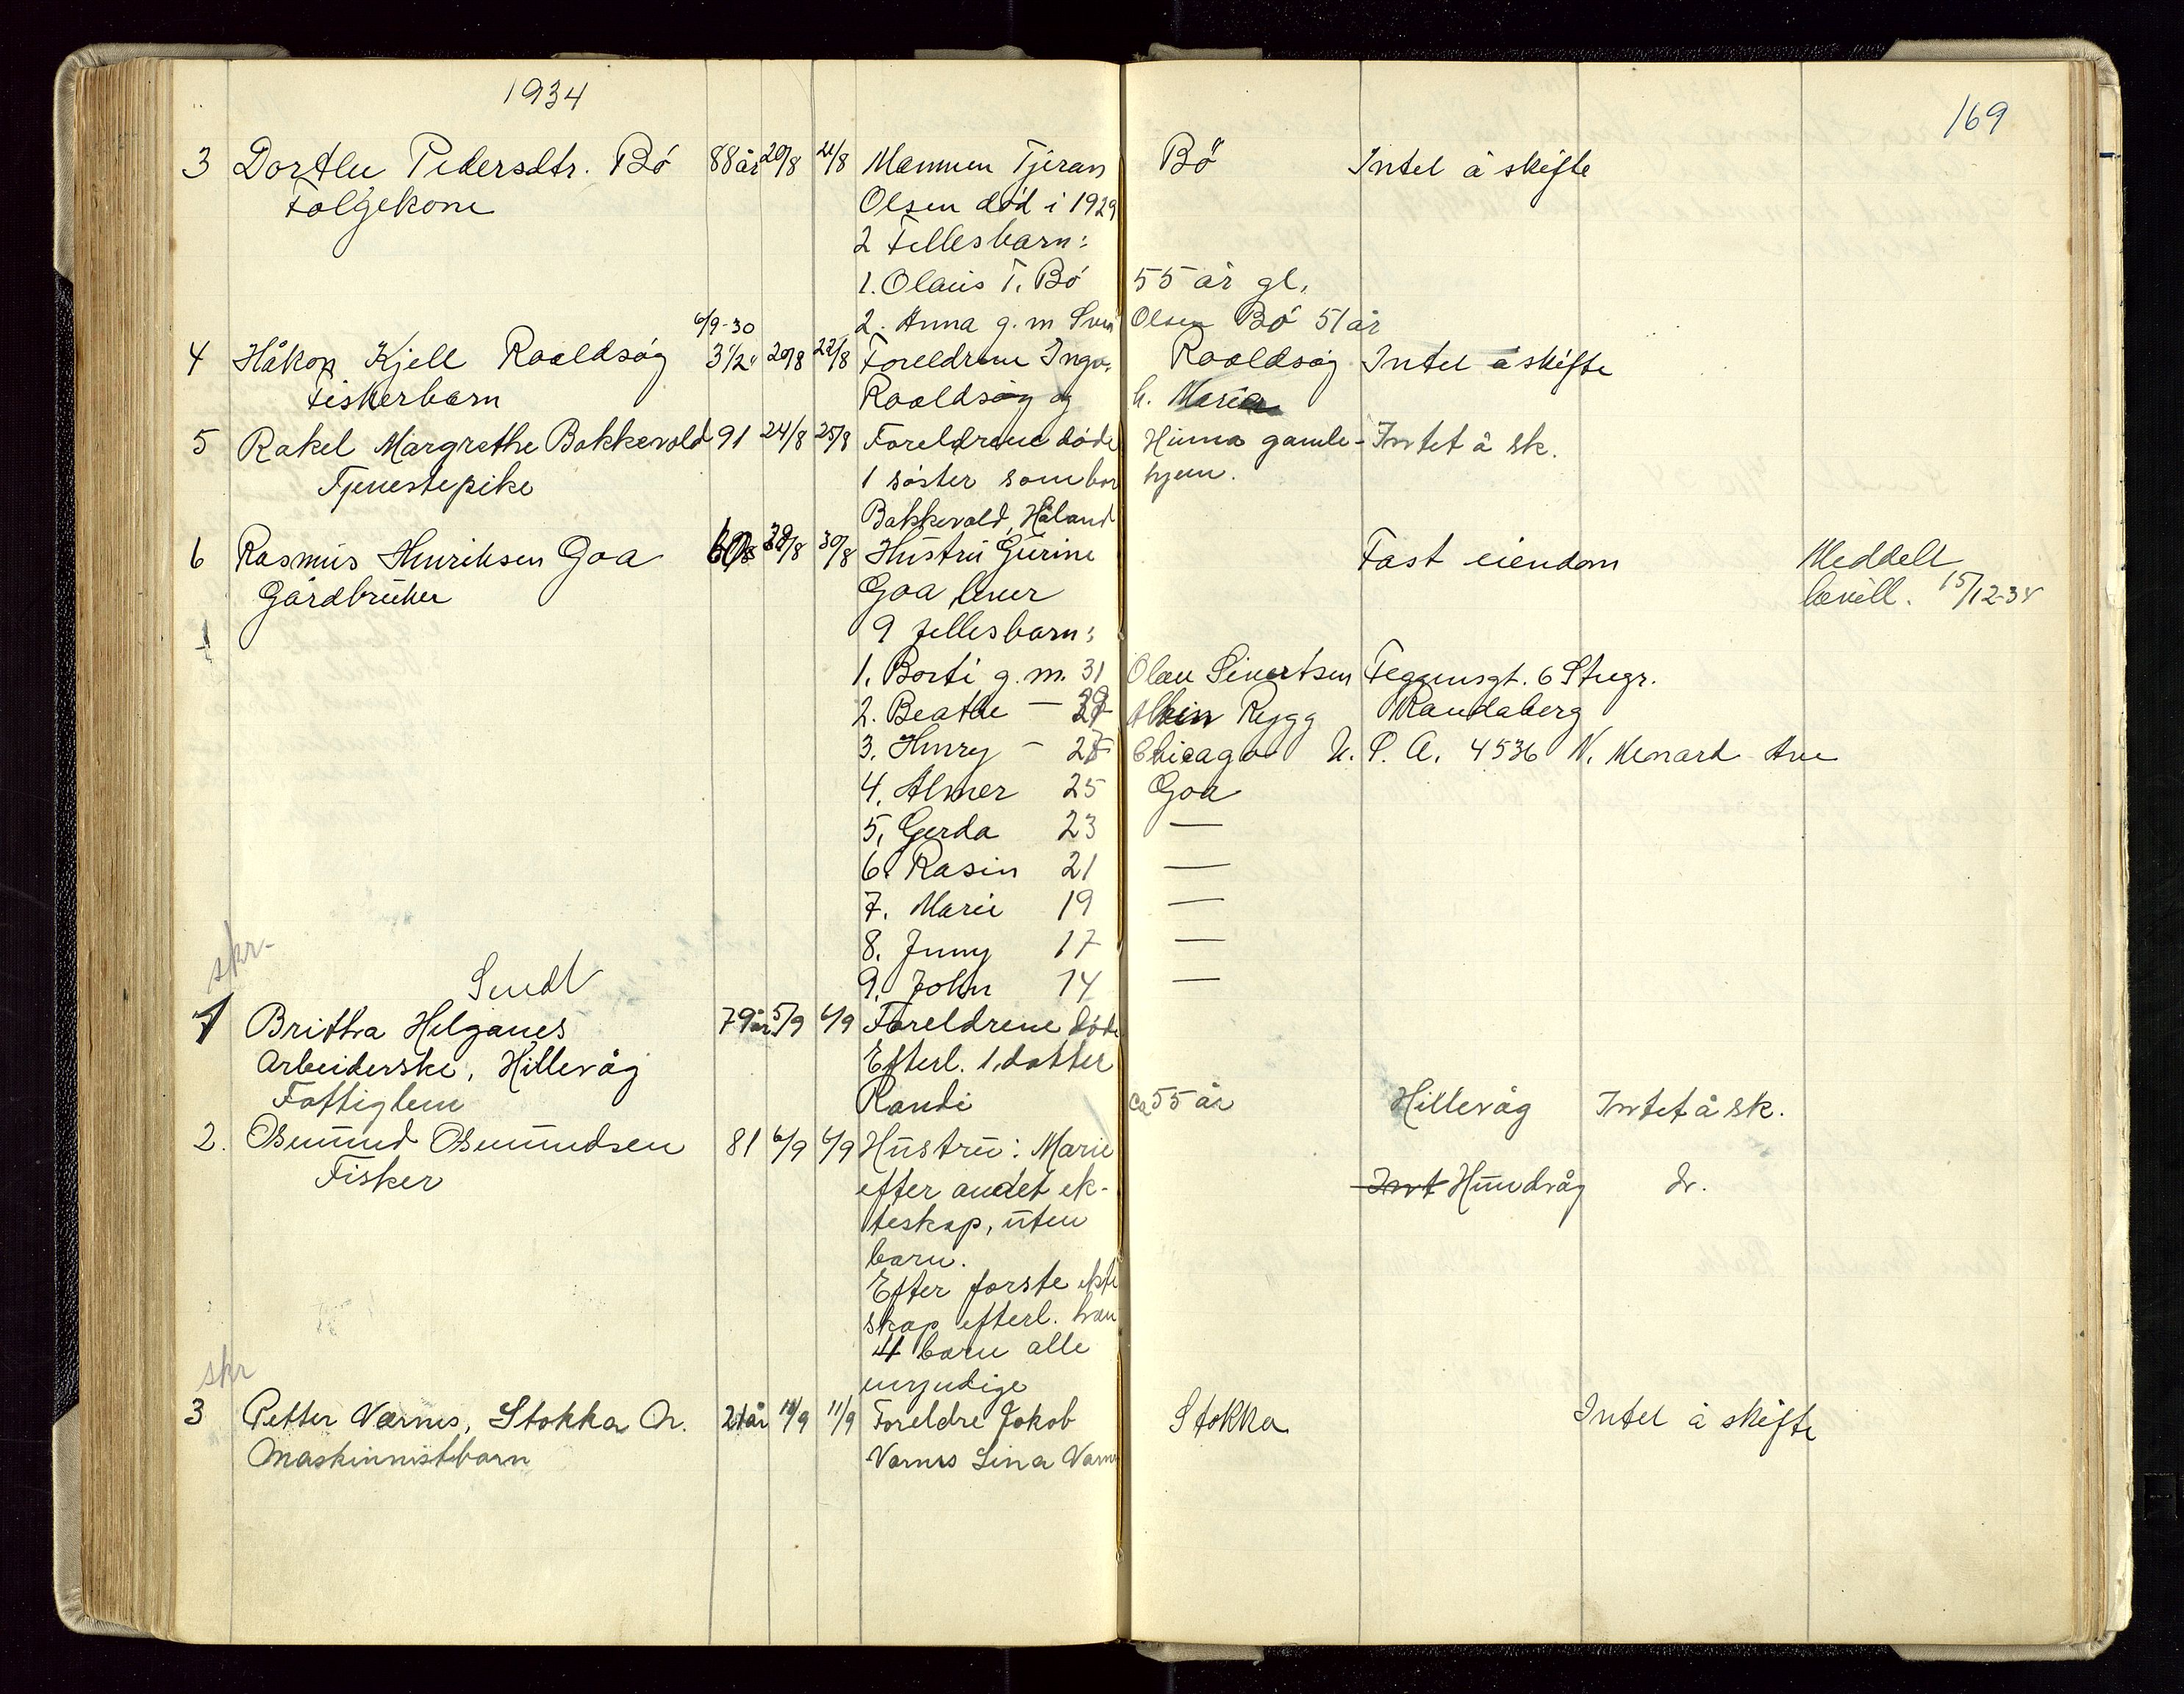 1934
169
3 Dorthe Pedersdtr. Bö 88 år 20/8 21/8 Mannen Tjeran Bö Intet å skifte
Følgekone Olsen död i 1929
2 Fellesbarn:
1. Olaus T. Bö 55 år gl.
6/9-30 2. Anna g. m Sven Olsen Bö 51 år
4 Håkon Kjell Roaldsøy 3 1/2 20/8 22/8 Foreldrene Inga Roaldsøy Intet å skifte
Fiskerbarn Roaldsøy og h. Maria
5 Rakel Margrethe Bakkevold 91 24/8 25/8 Foreldrene døde Hinna gamle- Intet å sk.
Tjenestepike 1 søster som bor hjem.
Bakkevold, Håland
6 Rasmus Henriksen Goa 30/8 Hustru Gurine Fast eiendom Meddelt
Gårdbruker Goa lever bevill. 15/12-34
9 fellesbarn:
1. Borti g. m. 31 Olau Sivertsen Teggensgt. 6 Stvgr.
2. Beathe — Rygg Randaberg
3. Henry — Chicago U. S. A. 4536 N. Menard Ave
4. Almer 25 Goa
5. Gerda 23 —
6. Rasin 21 —
7. Marie 19 —
8. Jenny 17 —
skr- Sendt 9. John 14 —
1 Britha Helganes 79 år 5/9 6/9 Foreldrene døde
Arbeiderske, Hillevåg Efterl. 1. datter
Fattiglem Randi ca 55 år Hillevåg Intet å sk.
2. Osmund Osmundsen 81 6/9 6/9 Hustru: Marie
Fisker efter andet ek- Int Hundvåg Do.
teskap, uten
barn.
Efter første ekte
skap efterl. han
4 barn alle
skr myndige
3 Petter Varnes, Stokka Ar. 11/9 Foreldre Jakob Stokka Intet å skifte
Maskinnistbarn Varnes Lina Varnes